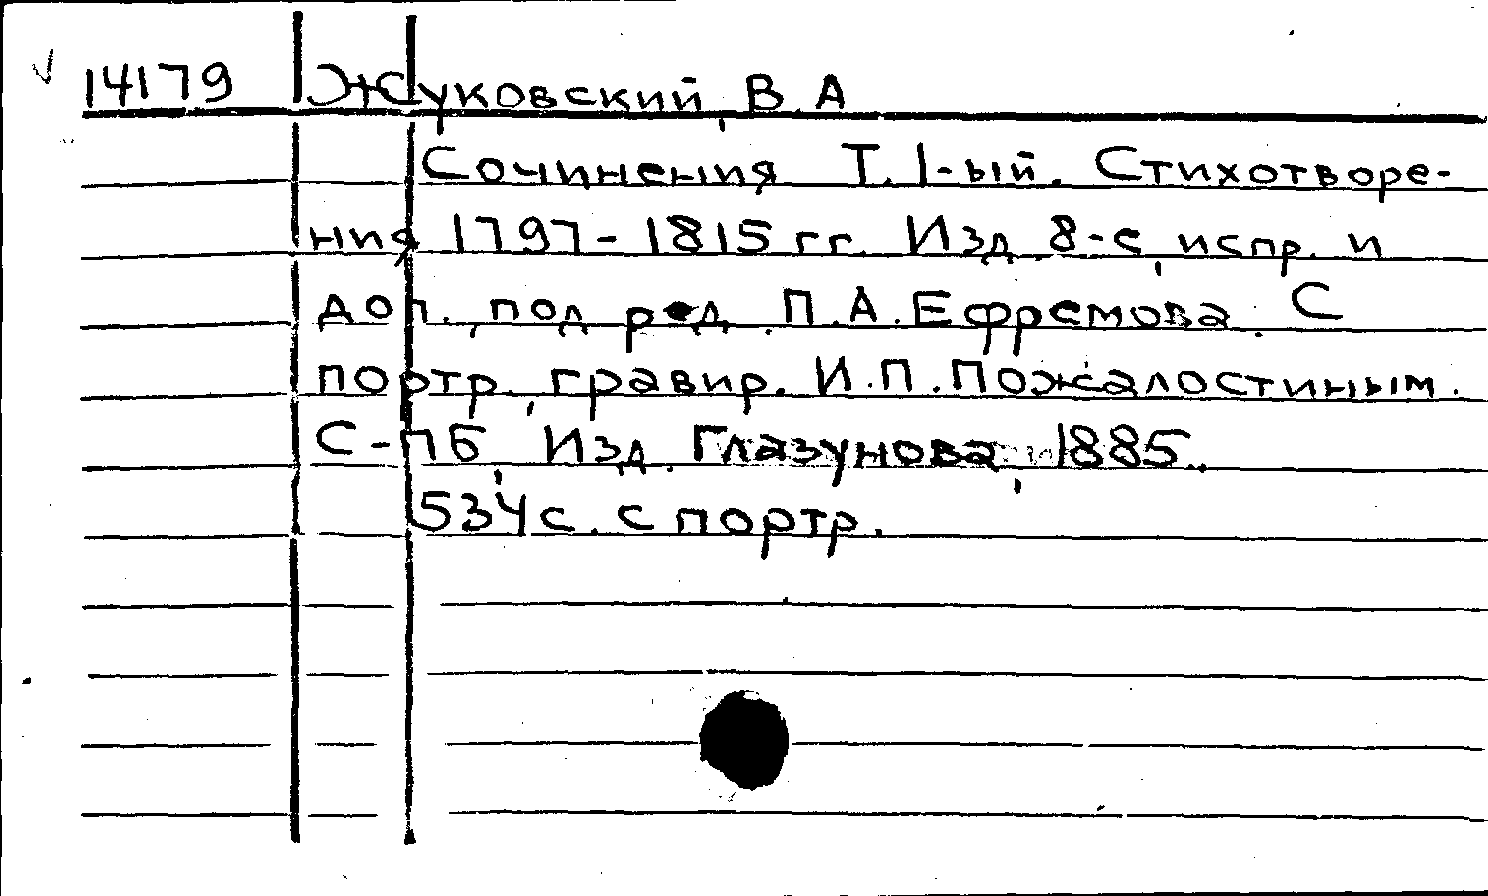 14179 Жуковский, В. А
Сочинения Т. I-ый. Стихотворе-
ния 1797-1815 гг. Изд. 8-е, испр. и
доп., под ред. П.А. Ефремова. С
портр., гравир. И.П. Пожалостиным.
С-ПБ, Изд. Глазунова, 1885.
534 с. с портр.